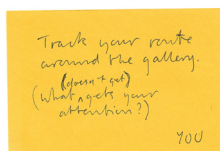 Track your route
around the gallery.
(doesn't get)
(what gets your
attention?)
YOU